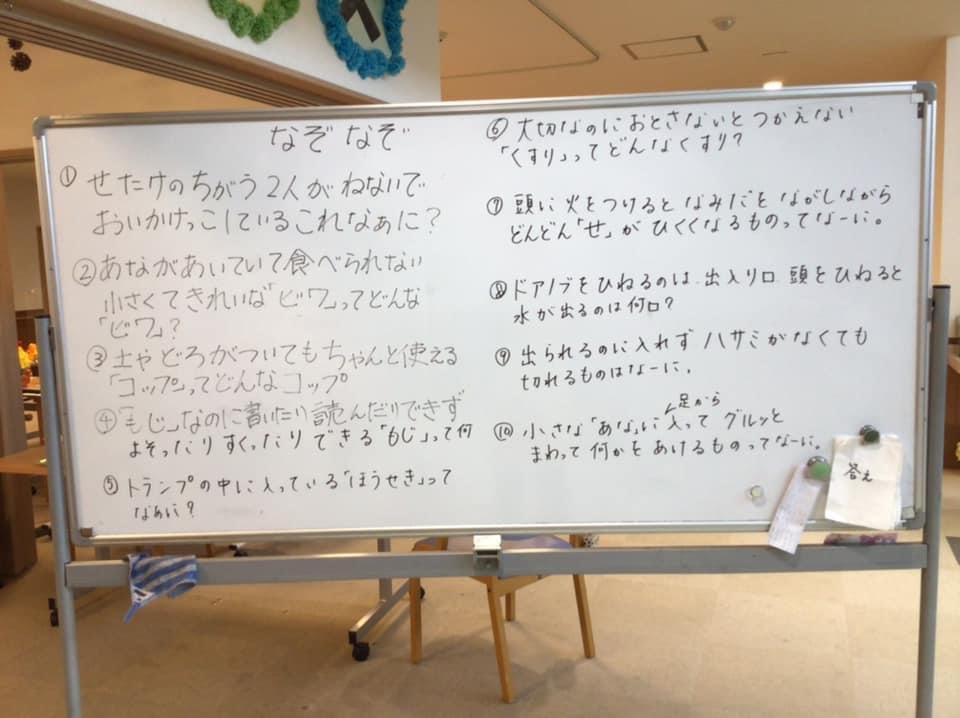 なぞなぞ
① せたけのちがう2人がねないで
おいかけっこしているこれなぁに?
② あながあいていて食べられない
小さくてきれいな「ビワ」ってどんな
「ビワ」?
③ 土やどろがついてもちゃんと使える
「コップ」ってどんなコップ
④ 「もじ」なのに書いたり読んだりできず
よそったりすくったりできる「もじ」って何
⑤ トランプの中に入っている「ほうせき」って
なぁに?
⑥ 大切なのにおとさないとつかえない
「くすり」ってどんなくすり?
⑦ 頭に火をつけるとなみだをながしながら
どんどん「せ」がひくくなるものってなーに。
⑧ ドアノブをひねるのは出入り口 頭をひねると
水が出るのは何口?
⑨ 出られるのに入れず ハサミがなくても
切れるものはなーに。
足から
⑩ 小さな「あな」に入って グルッと
まわって何かをあけるものってなーに。
答え